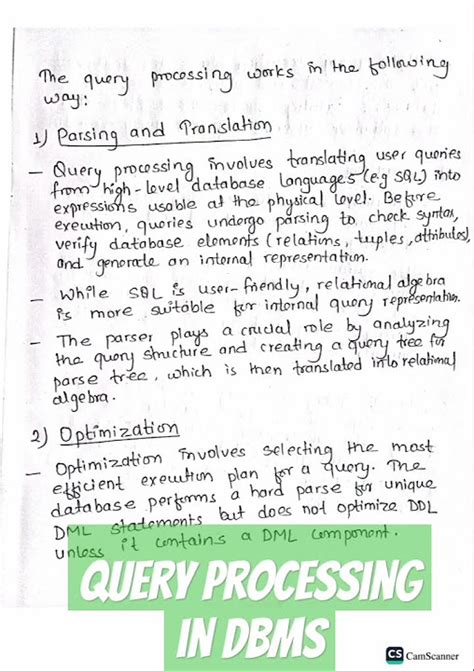 The query processing works in the following
way:
1) Parsing and Translation
- Query processing involves translating user queries
from high-level database languages (e.g SQL) into
expressions usable at the physical level. Before
execution, queries undergo parsing to check syntax,
verify database elements (relations, tuples, attributes)
and generate an internal representation.
- While SQL is user-friendly, relational algebra
is more suitable for internal query representation.
- The parser plays a crucial role by analyzing
the query structure and creating a query tree for
parse tree, which is then translated into relational
algebra.
2) Optimization
- Optimization involves selecting the most
efficient execution plan for a query. The
database performs a hard parse for unique
DML statements but does not optimize DDL
unless it contains a DML component.
QUERY PROCESSING
IN DBMS
CS CamScanner